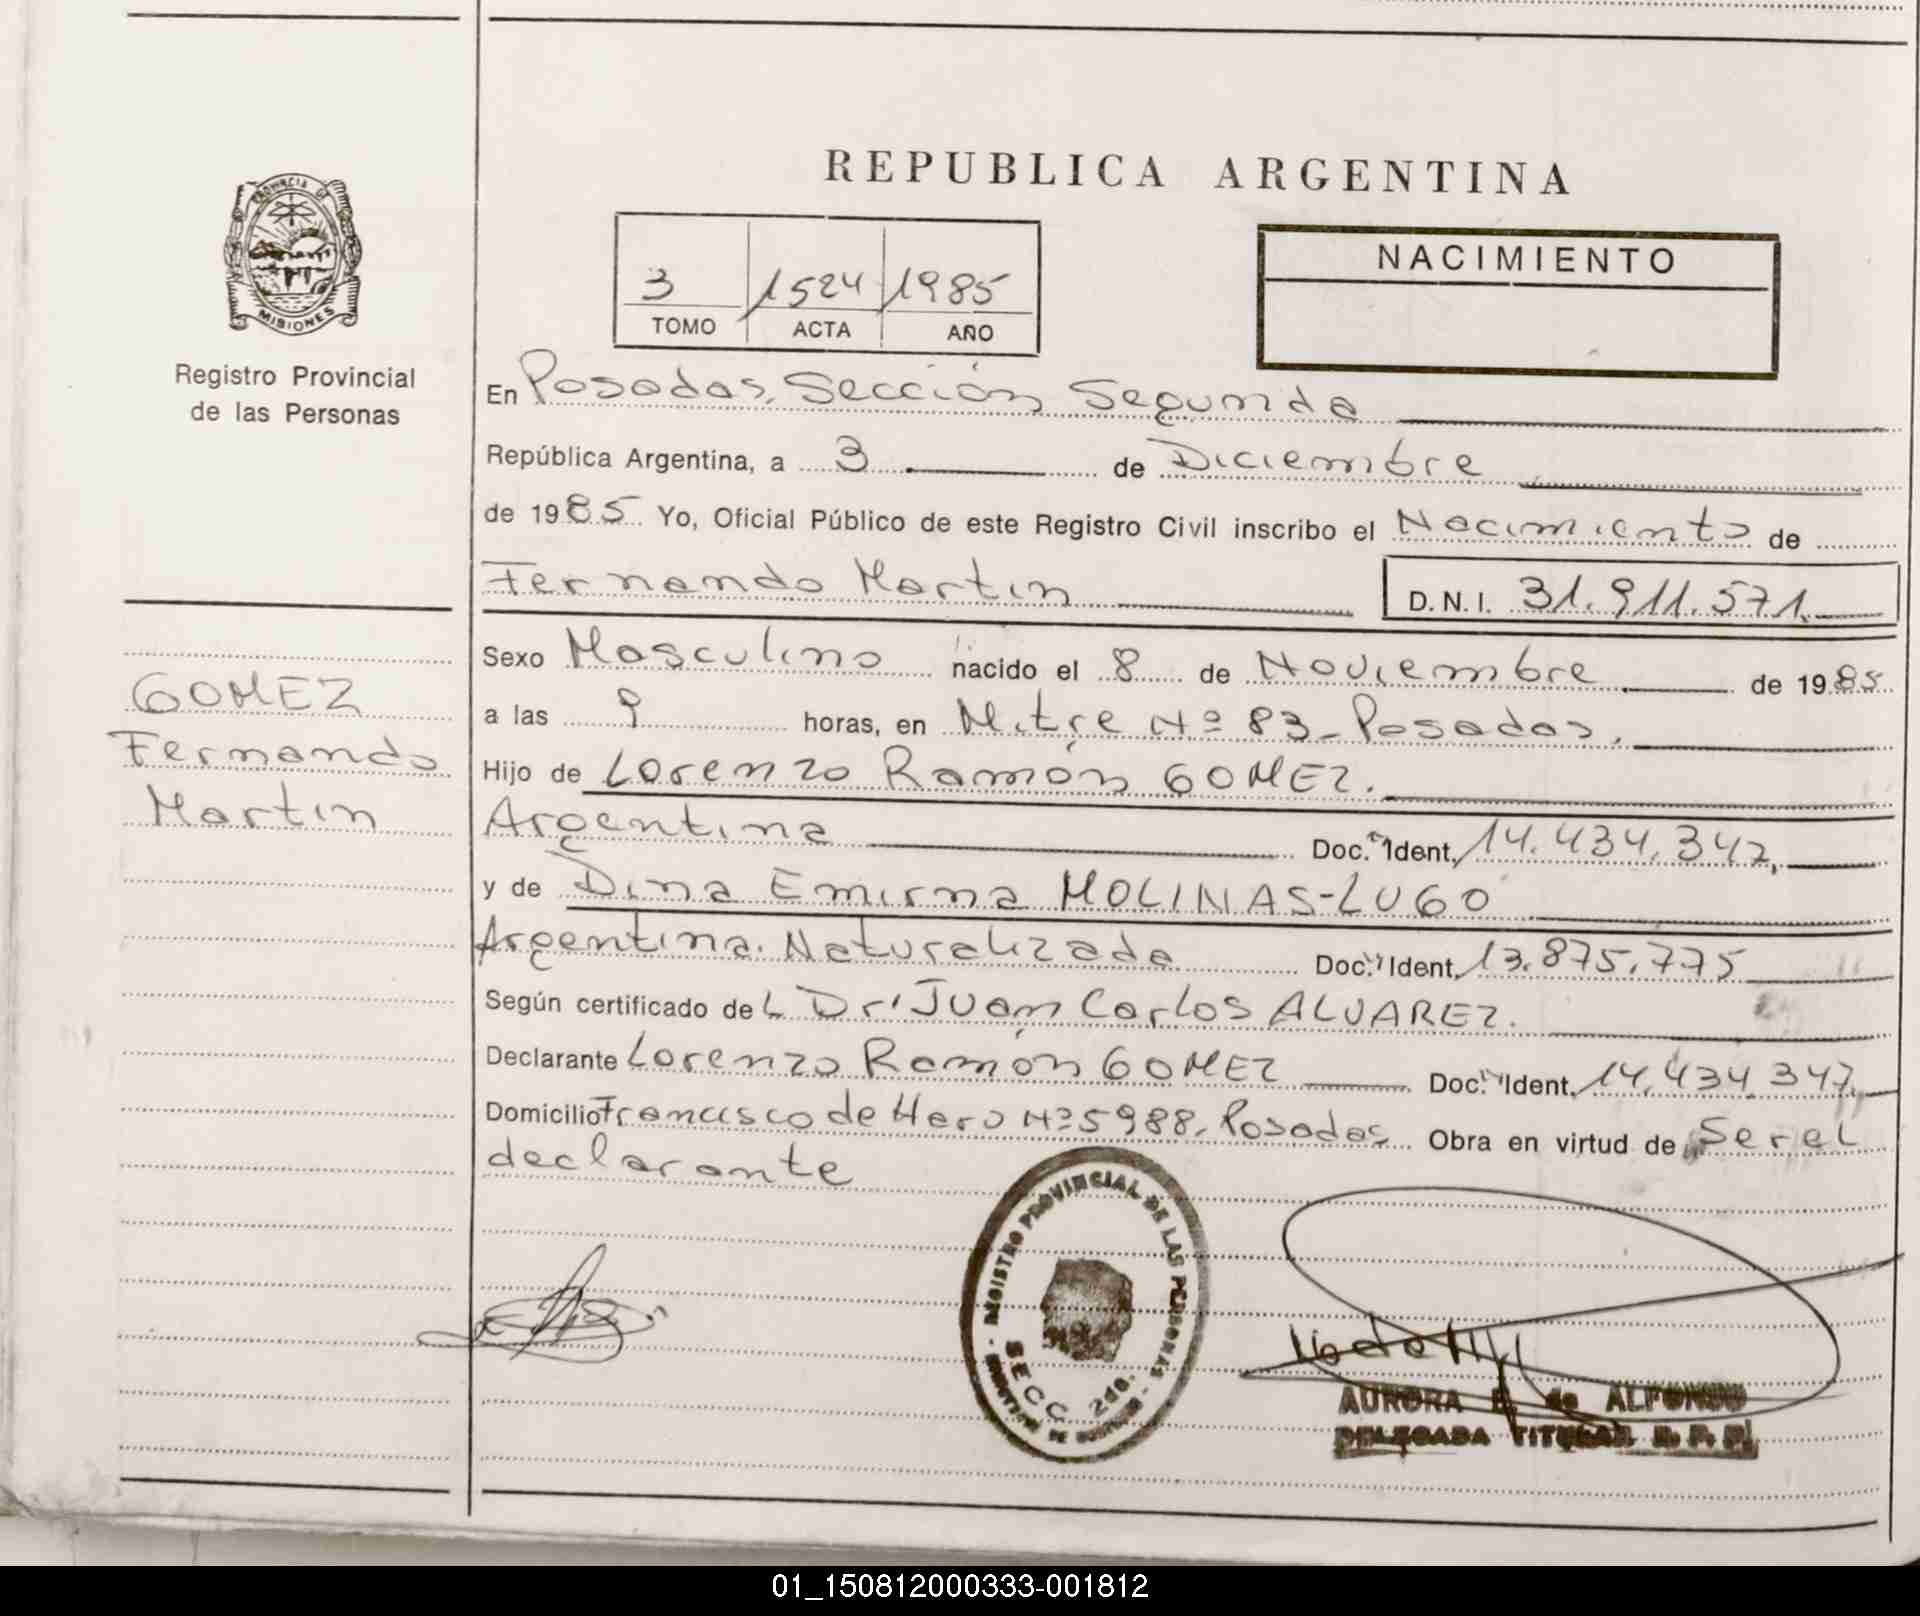 REPUBLICA ARGENTINA
PROVINCIA DE
MISIONES
Registro Provincial
de las Personas
3 1524 1985
TOMO ACTA AÑO
NACIMIENTO
En Posadas, Sección Segunda
República Argentina, a 3 de Diciembre
de 1985 Yo, Oficial Público de este Registro Civil inscribo el Nacimiento de
Fernando Martin D.N.I. 31.911.571.
Sexo Masculino nacido el 8 de Noviembre de 1985
a las 9 horas, en Mitre Nº 83 - Posadas.
Hijo de Lorenzo Ramón GOMEZ.
Argentina Doc. Ident. 14.434.347,
y de Dina Emirna MOLINAS-LUGO
Argentina. Naturalizada Doc. Ident. 13.875.775
Según certificado de L Dr. Juan Carlos ALVAREZ.
Declarante Lorenzo Ramón GOMEZ Doc. Ident. 14.434.347,
Domicilio Francisco de Haro Nº 5988, Posadas Obra en virtud de Ser el
declarante
GOMEZ
Fernando
Martin
REGISTRO PROVINCIAL DE LAS PERSONAS
SECC 2da.
AURORA de ALFONSO
DELEGADA TITULAR R. P. P.
01_150812000333-001812